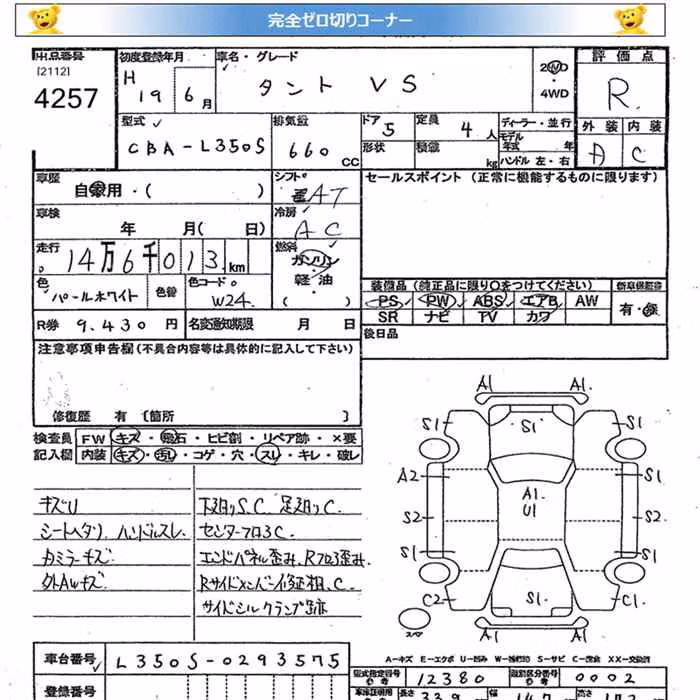 完全ゼロ切りコーナー
出品番号 初度登録年月 車名・グレード 評価点
[2112] H 19 6月 タント VS 2WD ・ 4WD R
4257
型式 排気量 ドア 定員 ディーラー・並行 外装 内装
CBA-L350S 660 CC 5 4人 モデル年式 年 A C
形状 積載 kg ハンドル 左・右
車歴 自家用・( ) シフト AT セールスポイント (正常に機能するものに限ります)
車検 年 月( 日) 冷房 AC
走行 14万6千013km 燃料 ガソリン
軽・油
( )
色 パールホワイト 色替 色コード W24 装備品 (純正品に限り〇をつけてください) 新車保証書
PS PW ABS エアB AW 有・
SR ナビ TV カワ
R券 9.430 円 名変通知期限 月 日 後日品
注意事項申告欄 (不具合内容等は具体的に記入して下さい)
修復歴 有 〔箇所 〕
検査員 FW キズ・飛石・ヒビ割・リペア跡・×要
記入欄 内装 キズ・汚れ・コゲ・穴・スレ・キレ・破レ
キズU 下廻りS.C 足廻りC
シートヘタリ ハンドルスレ センターフロアC
カミラーキズ エンドパネル歪み、Rフロア歪み
外AWキズ Rサイドメンバー修正粗、C
サイドシルクランプ跡
A1 A1.
S1 S1 S1
A2 S1
A1.
U1
S2 S2
S1 S1
C2 S1 C1
スペア A1 A1.
車台番号 L350S-0293575
A-キズ E-エクボ U-凹み W-補修凹 S-サビ C-腐食 XX-交換済
型式指定番号 参考 12380 類別区分番号 参考 0002
登録番号 車体証明用 参考 長さ 339 幅 147 高さ